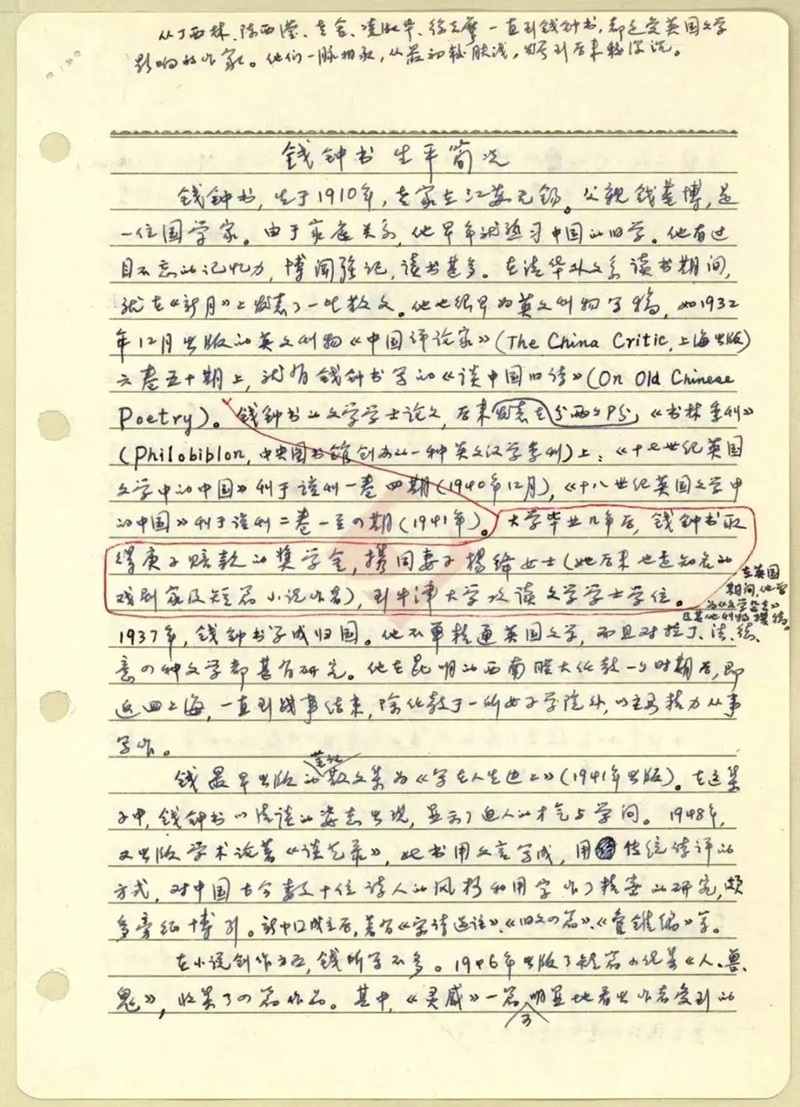 从丁西林、陈西滢、老舍、凌叔华、徐志摩一直到钱钟书，都是受英国文学
影响的作家。他们一脉相承，从最初较肤浅，发展到后来较深沉。
钱钟书生平简况
钱钟书，生于1910年，老家在江苏无锡。父亲钱基博，是
一位国学家。由于家庭关系，他早年就熟习中国的旧学。他有过
目不忘的记忆力，博闻强记，读书甚多。在清华外文系读书期间，
就在《新月》上发表了一些散文。他也很早为英文刊物写稿，如1932
年12月出版的英文刊物《中国评论家》(The China Critic，上海出版)
六卷五十期上，就有钱钟书写的《谈中国旧诗》(On Old Chinese
Poetry)。钱钟书的文学学士论文，后来发表在《书林季刊》
(Philobiblon，中央图书馆创办的一种英文汉学季刊)上：《十七世纪英国
文学中的中国》刊于该刊一卷四期(1940年12月)，《十八世纪英国文学中
的中国》刊于该刊二卷一至四期(1941年)。大学毕业几年后，钱钟书取
得庚子赔款的奖学金，携同妻子杨绛女士(她后来也是知名的
戏剧家及短篇小说作者)，到牛津大学攻读文学学士学位。
在英国
期间，他曾
为《文学杂志》
及其他刊物撰稿。
1937年，钱钟书学成归国。他不单精通英国文学，而且对拉丁、法、德、
意四种文学都甚有研究。他在昆明的西南联大任教一个时期后，即
返回上海，一直到战事结束，除任教于一所女子学院外，以主要精力从事
写作。
钱最早出版的散文集为《写在人生边上》(1941年出版)。在这集
子中，钱钟书以清谈的姿态出现，显示了迫人的才气与学问。1948年，
又出版学术论著《谈艺录》，此书用文言写成，用传统诗评的
方式，对中国古今数十位诗人的风格和用字作了精密的研究，颇
多旁征博引。新中国成立后，著有《宋诗选注》、《旧文四篇》、《管锥编》等。
在小说创作方面，钱所写不多。1946年出版了短篇小说集《人·兽·
鬼》，收集了四篇作品。其中，《灵感》一篇可明显地看出作者受到的